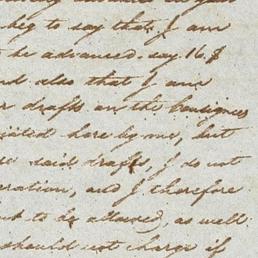 beg to say that I am
be advanced. say 16.
and also that I am
drafts on the Consignees
here by me, but
said drafts, I do not
eration, and I therefore
to be allowed, as well
should not charge if